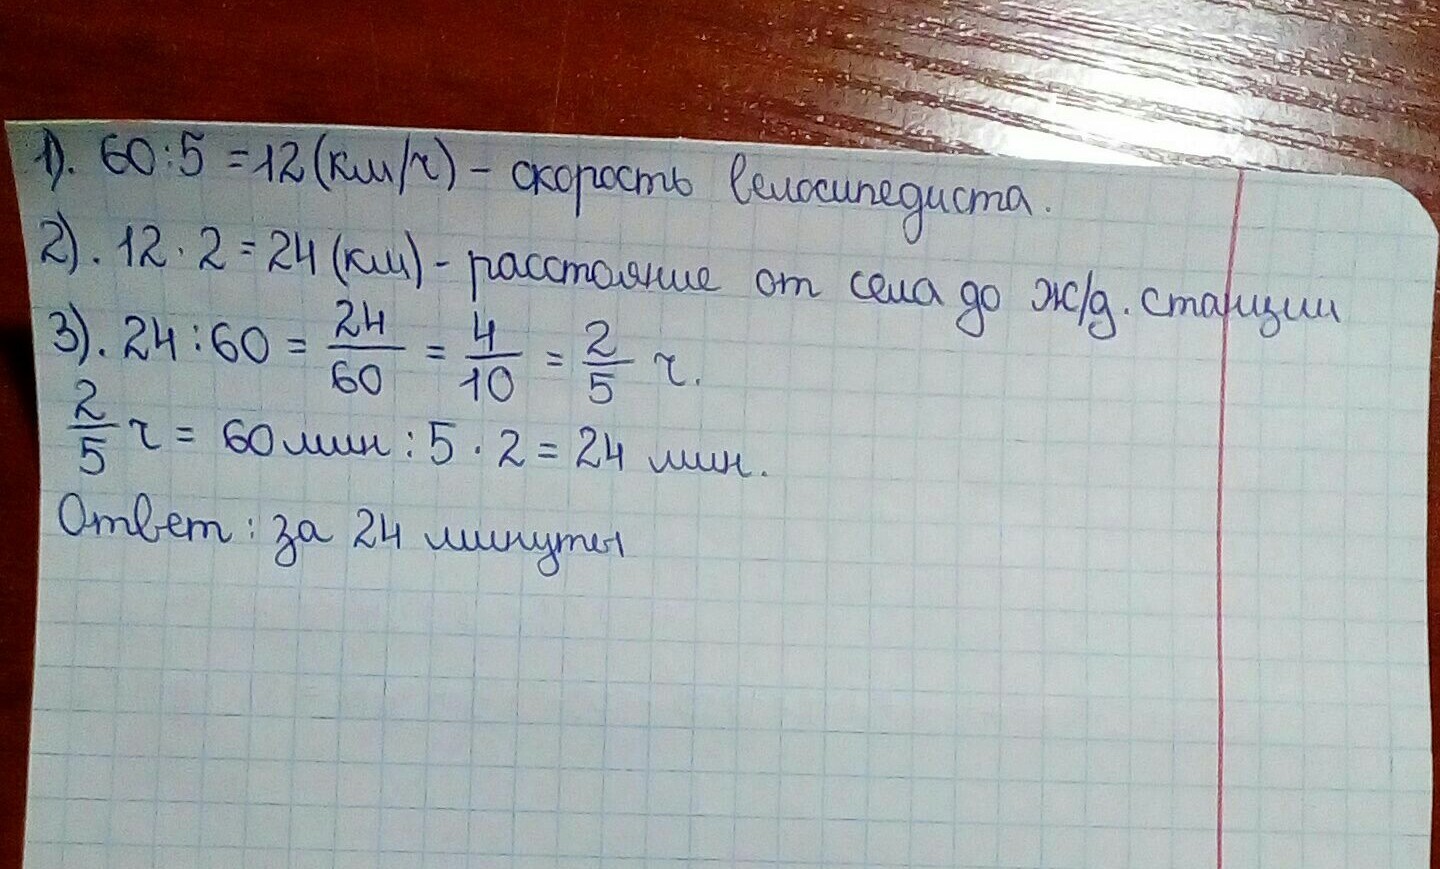 1). 60:5 = 12 (км/ч) - скорость велосипедиста.
2). 12 · 2 = 24 (км) - расстояние от села до ж/д. станции
3). 24 : 60 = 24/60 = 4/10 = 2/5 ч.
2/5 ч = 60 мин : 5 · 2 = 24 мин.
Ответ : за 24 минуты